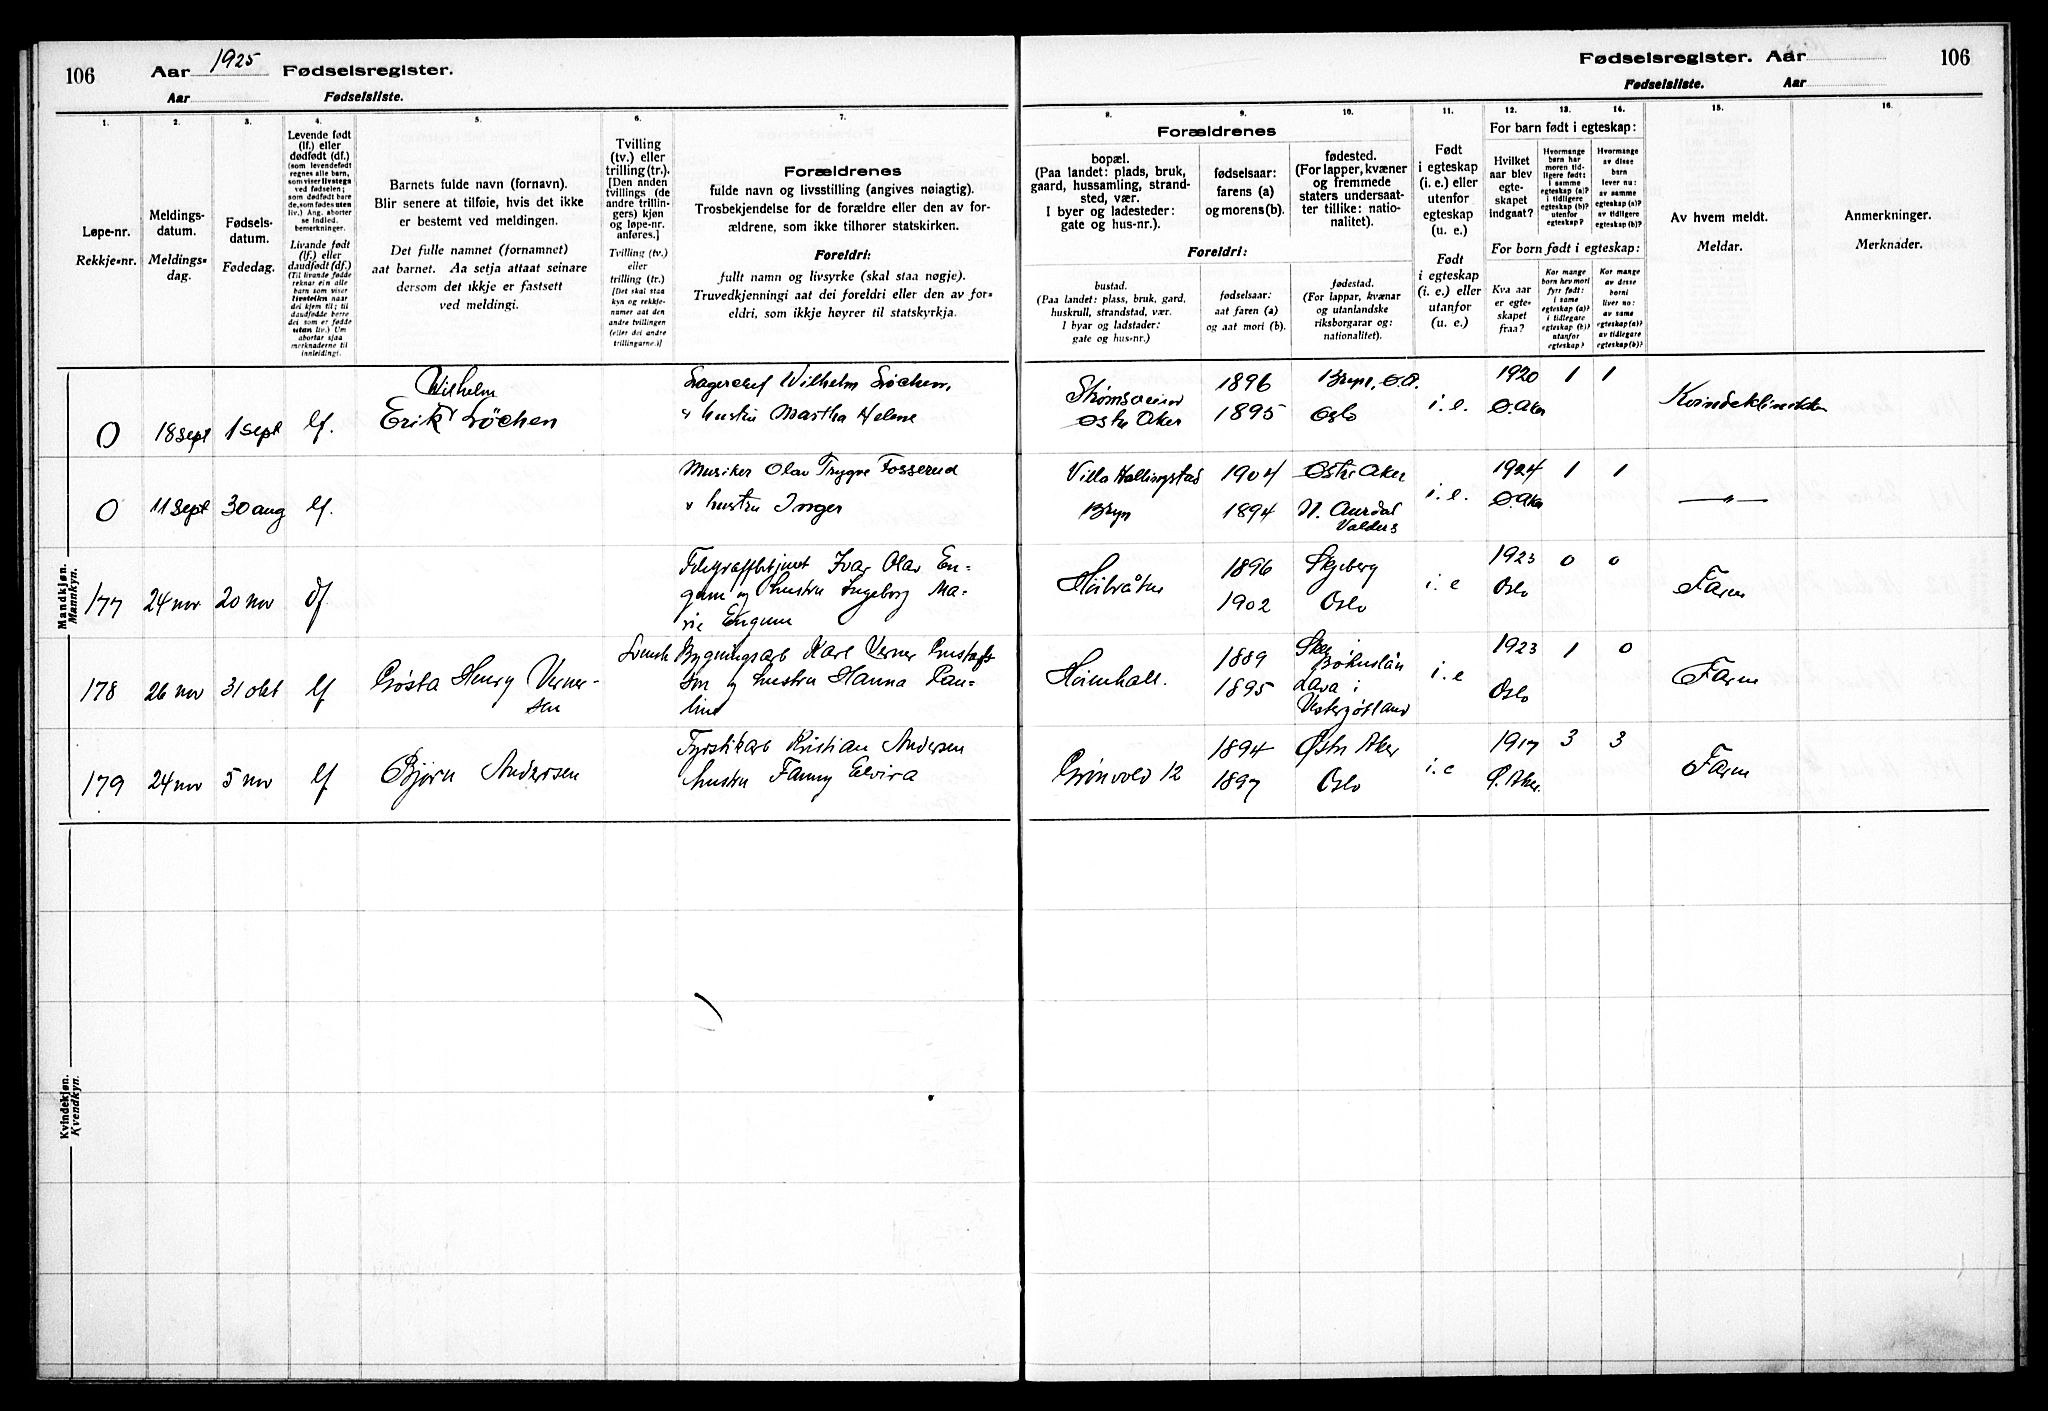 106 Aar 1925 Fødselsregister.
Aar Fødselsliste.
1. 2. 3. 4. 5. 6. 7.
Løpe-nr.
Rekkje-nr.
Meldings-
datum.
Meldings-
dag.
Fødsels-
datum.
Fødedag.
Levende født
(lf.) eller
dødfødt (df.)
(som levendefødt
regnes alle barn,
som viser livstegn
ved fødselen;
som dødfødt bare
de, som fødes uten
liv.) Ang. aborter
se indled.
bemerkninger.
Livande født
(lf.) eller
daudfødt (df.)
(Til livande fødde
reknar ein alle
barn som viser
livsteikn naar
dei kjem til; til
daudfødde berre
dei som er fødde
utan liv.) Um
abortar sjaa
merknaderne til
innleidingi.
Barnets fulde navn (fornavn).
Blir senere at tilføie, hvis det ikke
er bestemt ved meldingen.
Det fulle namnet (fornamnet)
aat barnet. Aa setja attaat seinare
dersom det ikkje er fastsett
ved meldingi.
Tvilling
(tv.) eller
trilling (tr.).
[Den anden
tvillings (de
andre trillin-
gers) kjøn
og løpe-nr.
anføres.]
Tvilling (tv.)
eller
trilling (tr.)
[Det skal staa
kyn og rekkje-
numer aat den
andre tvillingen
(eller dei andre
trillingarne.)]
Forældrenes
fulde navn og livsstilling (angives nøiagtig).
Trosbekjendelse for de forældre eller den av for-
ældrene, som ikke tilhører statskirken.
Foreldri:
fullt namn og livsyrke (skal staa nøgje).
Truvedkjenningi aat dei foreldri eller den av for-
eldri, som ikkje høyrer til statskyrkja.
Mandkjøn.
Mannkyn.
Wilhelm
0 18 sept 1 sept lf. Erik Løchen
Lagerchef Wilhelm Løchen,
hustru Martha Helene
0 11 sept 30 aug lf.
Musiker Olav Trygve Fosserud
hustru Inger
177 24 nov 20 nov df
Ivar Olav En-
gum og hustru Ingeborg Ma-
rie Engum
178 26 nov 31 okt lf Gøsta Henry Verner-
sen
Svensk Bygningsarb Karl Verner Gustafs
son og hustru Hanna Pau-
line
179 24 nov 5 nov lf Bjørn Andersen
Fyrstikarb Kristian Andersen
hustru Fanny Elvira
Kvindekjøn.
Kvendkyn.
Fødselsregister. Aar 106
Fødselsliste. Aar
8. 9. 10. 11. 12. 13. 14. 15. 16.
Forældrenes
bopæl.
(Paa landet: plads, bruk,
gaard, hussamling, strand-
sted, vær.
I byer og ladesteder:
gate og hus-nr.).
fødselsaar:
farens (a)
og morens (b).
fødested.
(For lapper, kvæner
og fremmede
staters undersaat-
ter tillike: natio-
nalitet).
Foreldri:
bustad.
(Paa landet: plass, bruk, gard,
huskrull, strandstad, vær.
I byar og ladstader:
gate og hus-nr.)
fødselsaar:
aat faren (a)
og aat mori (b).
fødestad.
(For lappar, kvænar
og utanlandske
riksborgarar og:
nationalitet).
Født
i egteskap
(i. e.) eller
utenfor
egteskap
(u. e.)
Født
i egteskap
(i. e.) eller
utanfor
(u. e.)
For barn født i egteskap:
Hvilket
aar blev
egte-
skapet
indgaat?
Hvormange
barn har
moren tid-
ligere født:
i samme
egteskap (a)?
i tidligere
egteskap (b)?
utenfor
egteskap?
Hvormange
av disse
barn
lever nu:
av samme
egteskap (a)?
av tidligere
egteskap (b)?
For born født i egteskap:
Kva aar
er egte-
skapet
fraa?
Kor mange
born hev mori
fyrr født:
i same
egteskap (a)?
i tidlegare
egteskap (b)?
utanfor
egteskap?
Kor mange
av desse
borni
liver no:
av same
egteskap (a)?
av tidlegare
egteskap (b)?
Av hvem meldt.
Meldar.
Anmerkninger.
Merknader.
1896 Bryn, Ø.A. 1920 1 1
Østre Aker 1895 Oslo i. e. Ø. Aker Kvindeklinikken
Villa Hallingstad 1904 Østre Aker 1924 1 1
Bryn 1894 N. Aurdal i. e. Ø. Aker — " —
Valders
1896 Skjeberg 1923 0 0
Høibråten 1902 Oslo i. e Oslo Faren
1889 1923 1 0
Høienhall. 1895 i. e Oslo Faren
Vestergøtland
1894 Østre Aker 1917 3 3
Grønvold 12 1897 Oslo i. e Ø. Aker. Faren